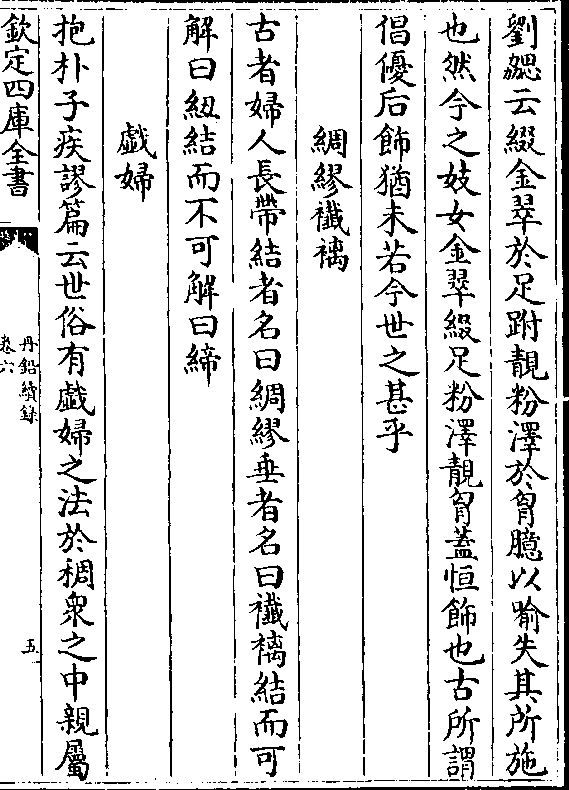 劉勰云綴金翠於足跗靚粉澤於胷臆以喻失其所施
也然今之妓女金翠綴足粉澤靚胷蓋恒飾也古所謂
倡優后飾猶未若今世之甚乎
綢繆襳褵
古者婦人長帶結者名曰綢繆垂者名曰襳褵結而可
解曰紐結而不可解曰締
戱婦
抱朴子疾謬篇云世俗有戱婦之法於稠衆之中親屬
欽定四庫全書
丹鉛續錄
卷六
五